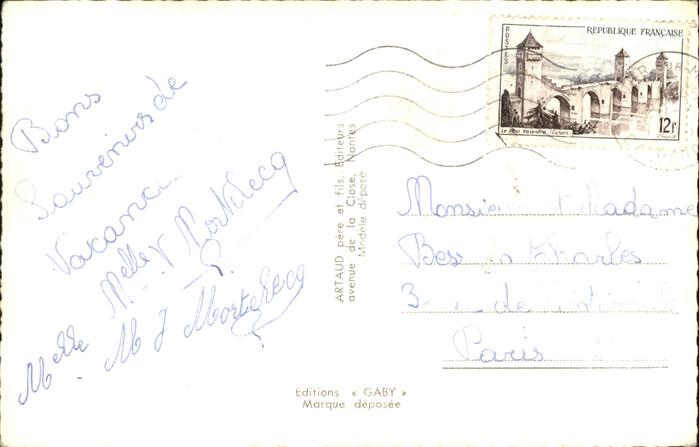 Bons
Souvenirs de
Vacance
Melle V Mortelecq
Melle M J Mortelecq
ARTAUD père et fils, Editeurs
avenue de la Close, Nantes
Modèle déposé
Editions « GABY »
Marque déposée
POSTES
REPUBLIQUE FRANÇAISE
Le Pont Valentré, (Cahors)
12F
Monsieur et Madame
Charles
3 de
Paris